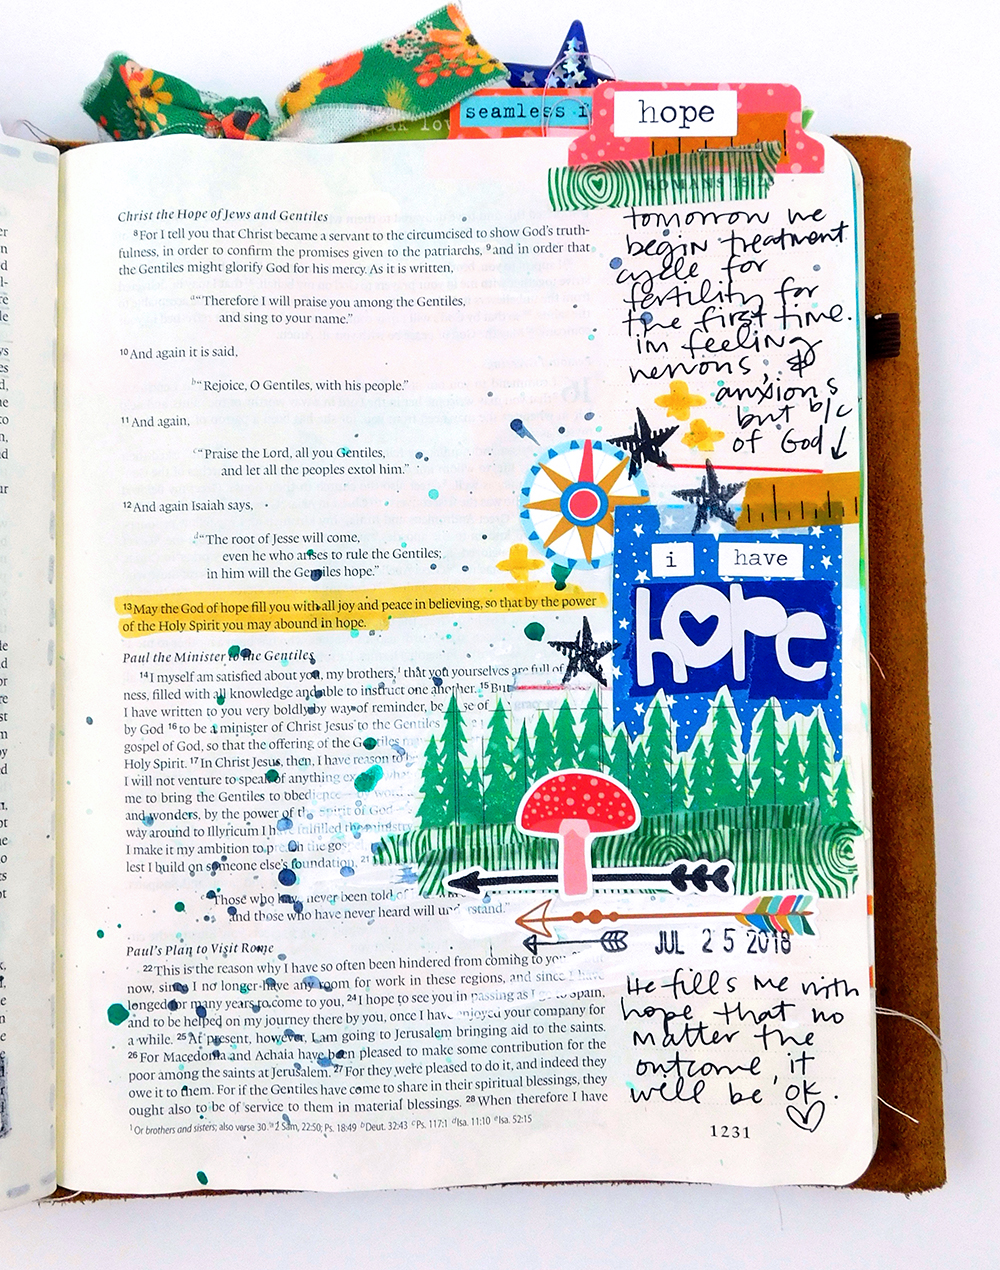 seamless
hope
ROMANS
Christ the Hope of Jews and Gentiles
8For I tell you that Christ became a servant to the circumcised to show God's truth-
fulness, in order to confirm the promises given to the patriarchs, 9and in order that
the Gentiles might glorify God for his mercy. As it is written,
a"Therefore I will praise you among the Gentiles,
and sing to your name."
10 And again it is said,
b"Rejoice, O Gentiles, with his people."
11 And again,
c"Praise the Lord, all you Gentiles,
and let all the peoples extol him."
12 And again Isaiah says,
d"The root of Jesse will come,
even he who arises to rule the Gentiles;
in him will the Gentiles hope."
13 May the God of hope fill you with all joy and peace in believing, so that by the power
of the Holy Spirit you may abound in hope.
Paul the Minister to the Gentiles
14 I myself am satisfied about you, my brothers,1 that you yourselves are full of
ness, filled with all knowledge and able to instruct one another. 15 But
I have written to you very boldly by way of reminder, be se of
by God 16 to be a minister of Christ Jesus to the Gentiles
gospel of God, so that the offering of the Gentiles
Holy Spirit. 17 In Christ Jesus, then, I have reason to
I will not venture to speak of anything what
me to bring the Gentiles to obedience— by word
and wonders, by the power of the Spirit of God—
way around to Illyricum I have fulfilled the ministry
I make it my ambition to preach the gospel
lest I build on someone else's foundation, 21
"Those who have never been told of
and those who have never heard will understand."
Paul's Plan to Visit Rome
22 This is the reason why I have so often been hindered from coming to you. 23 But
now, since I no longer have any room for work in these regions, and since I have
longed for many years to come to you, 24 I hope to see you in passing as I go to Spain,
and to be helped on my journey there by you, once I have enjoyed your company for
a while. 25 At present, however, I am going to Jerusalem bringing aid to the saints.
26 For Macedonia and Achaia have been pleased to make some contribution for the
poor among the saints at Jerusalem. 27 For they were pleased to do it, and indeed they
owe it to them. For if the Gentiles have come to share in their spiritual blessings, they
ought also to be of service to them in material blessings. 28 When therefore I have
1 Or brothers and sisters; also verse 30. a 2 Sam. 22:50; Ps. 18:49 b Deut. 32:43 c Ps. 117:1 d Isa. 11:10 e Isa. 52:15
1231
tomorrow we
begin treatment
cycle for
fertility for
the first time.
im feeling
nervous, &
anxious
but b/c
of God ↓
i have
hope
JUL 25 2018
He fills me with
hope that no
matter the
outcome, it
will be ok.